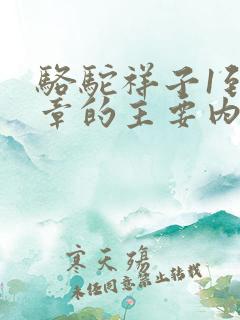 骆驼祥子1到
章的主要内
寒天殇
未经同意禁止转载